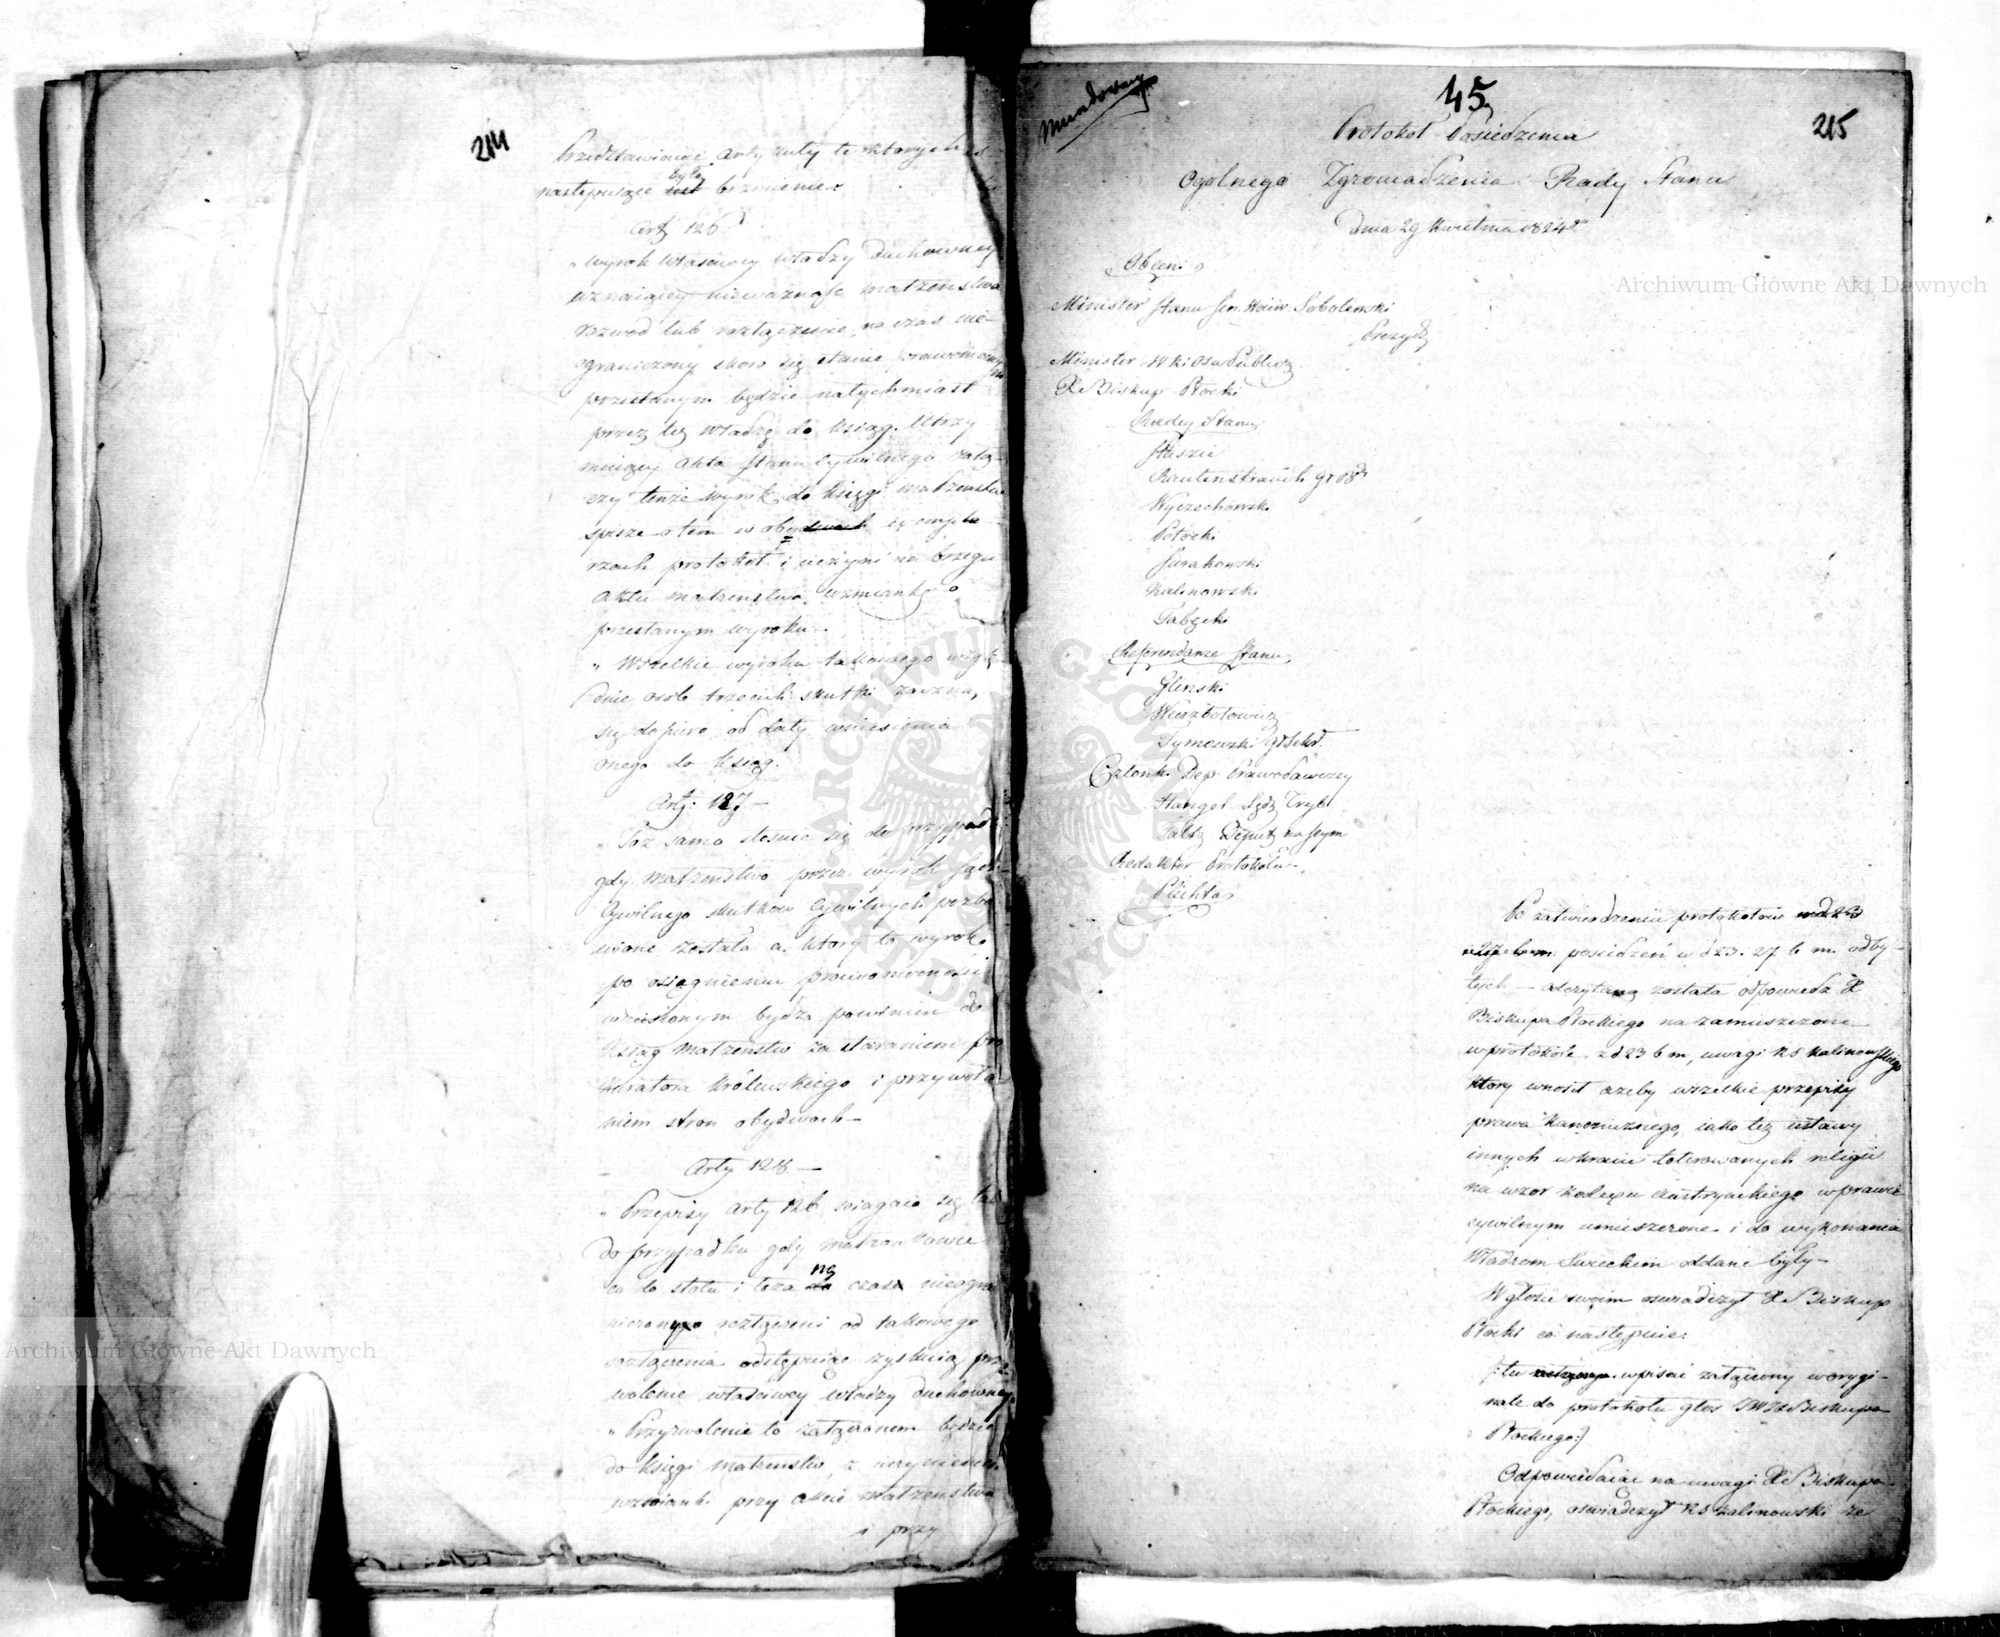 214
Przedstawiaiąc Artykuły te których
następuiące było brzmienie
Arty 126
„Wyrok właściwey władzy duchowney
uznaiący nieważność małżeństwa
rozwód lub rozłączenie na czas nie-
ograniczony skoro się stanie prawomocnym
przesłanym będzie natychmiast
przez tęż władzę do ksiąg. Utrzy
muiący Akta Stanu cywilnego załą-
czy tenże wyrok do księgi małżeństw
spisze o tem w obydwoch exempla-
rzach protokół i uczyni na brzegu
aktu małżeństwa wzmiankę o
przesłanym wyroku.
„Wszelkie wyroku takowego wzglę
dnie osób trzecich skutki zaczną
się dopiero od daty wniesienia
onego do ksiąg.
Arty: 127 —
„Toż samo stosuie się do przypadku
gdy małżeństwo przez wyrok Sądu
Cywilnego skutków cywilnych pozba
wione zostało a który to wyrok
po osiągnieniu prawomocności
wniesionym bydź powinien do
ksiąg małżeństw za staraniem pro
kuratora Królewskiego i przywoła
niem stron obydwoch —
Arty 128 —
„Przepisy Arty 126 sciągaią się
do przypadku gdy małżonkowie
co do stołu i łoża na czas nieogra
niczony rozłączeni od takowego
rozłączenia odstępuiąc zyskuią przy
wolenie właściwey władzy duchowney
„Przyzwolenie to załączonem będzie
do księgi małżeństw z uczynieniem
wzmianki przy akcie małżeństwa
i przy
Mundowany
45
215
Protokół Posiedzenia
Ogólnego Zgromadzenia Rady Stanu
Dnia 29 Kwietnia 1824 r
Obecni
Minister Stanu Sen. Woiew. Sobolewski
Prezyd
Minister W R i Oś. Publicz
X Biskup Płocki
Radcy Stanu
Staszic
Rautenstrauch
Wyczechowski
Potocki
Sarakowski
Kalinowski
Referendarze Stanu
Gliński
Wierzbołowicz
Tymowski
Członki Dep. Prawodawczey
Stangel Sędz Tryb
Faltz Deput na Seym
Redaktor Protokołów
Plichta
Po zatwierdzeniu protokołów
posiedzeń w d 23. 27 b m. odby-
tych — odczytaną została odpowiedź X
Biskupa Płockiego na zamieszczone
w protokóle z d 23 b m, uwagi RS Kalinowskiego
który wnosił ażeby wszelkie przepisy
prawa Kanonicznego, iako też ustawy
innych w kraiu tolerowanych religii
na wzór kodexu Austryackiego w prawie
cywilnym umieszczone i do wykonania
Władzom Świeckim oddane były —
W głosie swoim oświadczył X Biskup
Płocki co następuie:
[: tu wpisać załączony w orygi-
nale do protokołu głos JW X Biskupa
Płockiego:]
Odpowiadaiąc na uwagi X Biskupa
Płockiego, oświadczył RS Kalinowski że
Archiwum Główne Akt Dawnych
Archiwum Główne Akt Dawnych
ARCHIWUM GŁÓWNE AKT DAWNYCH